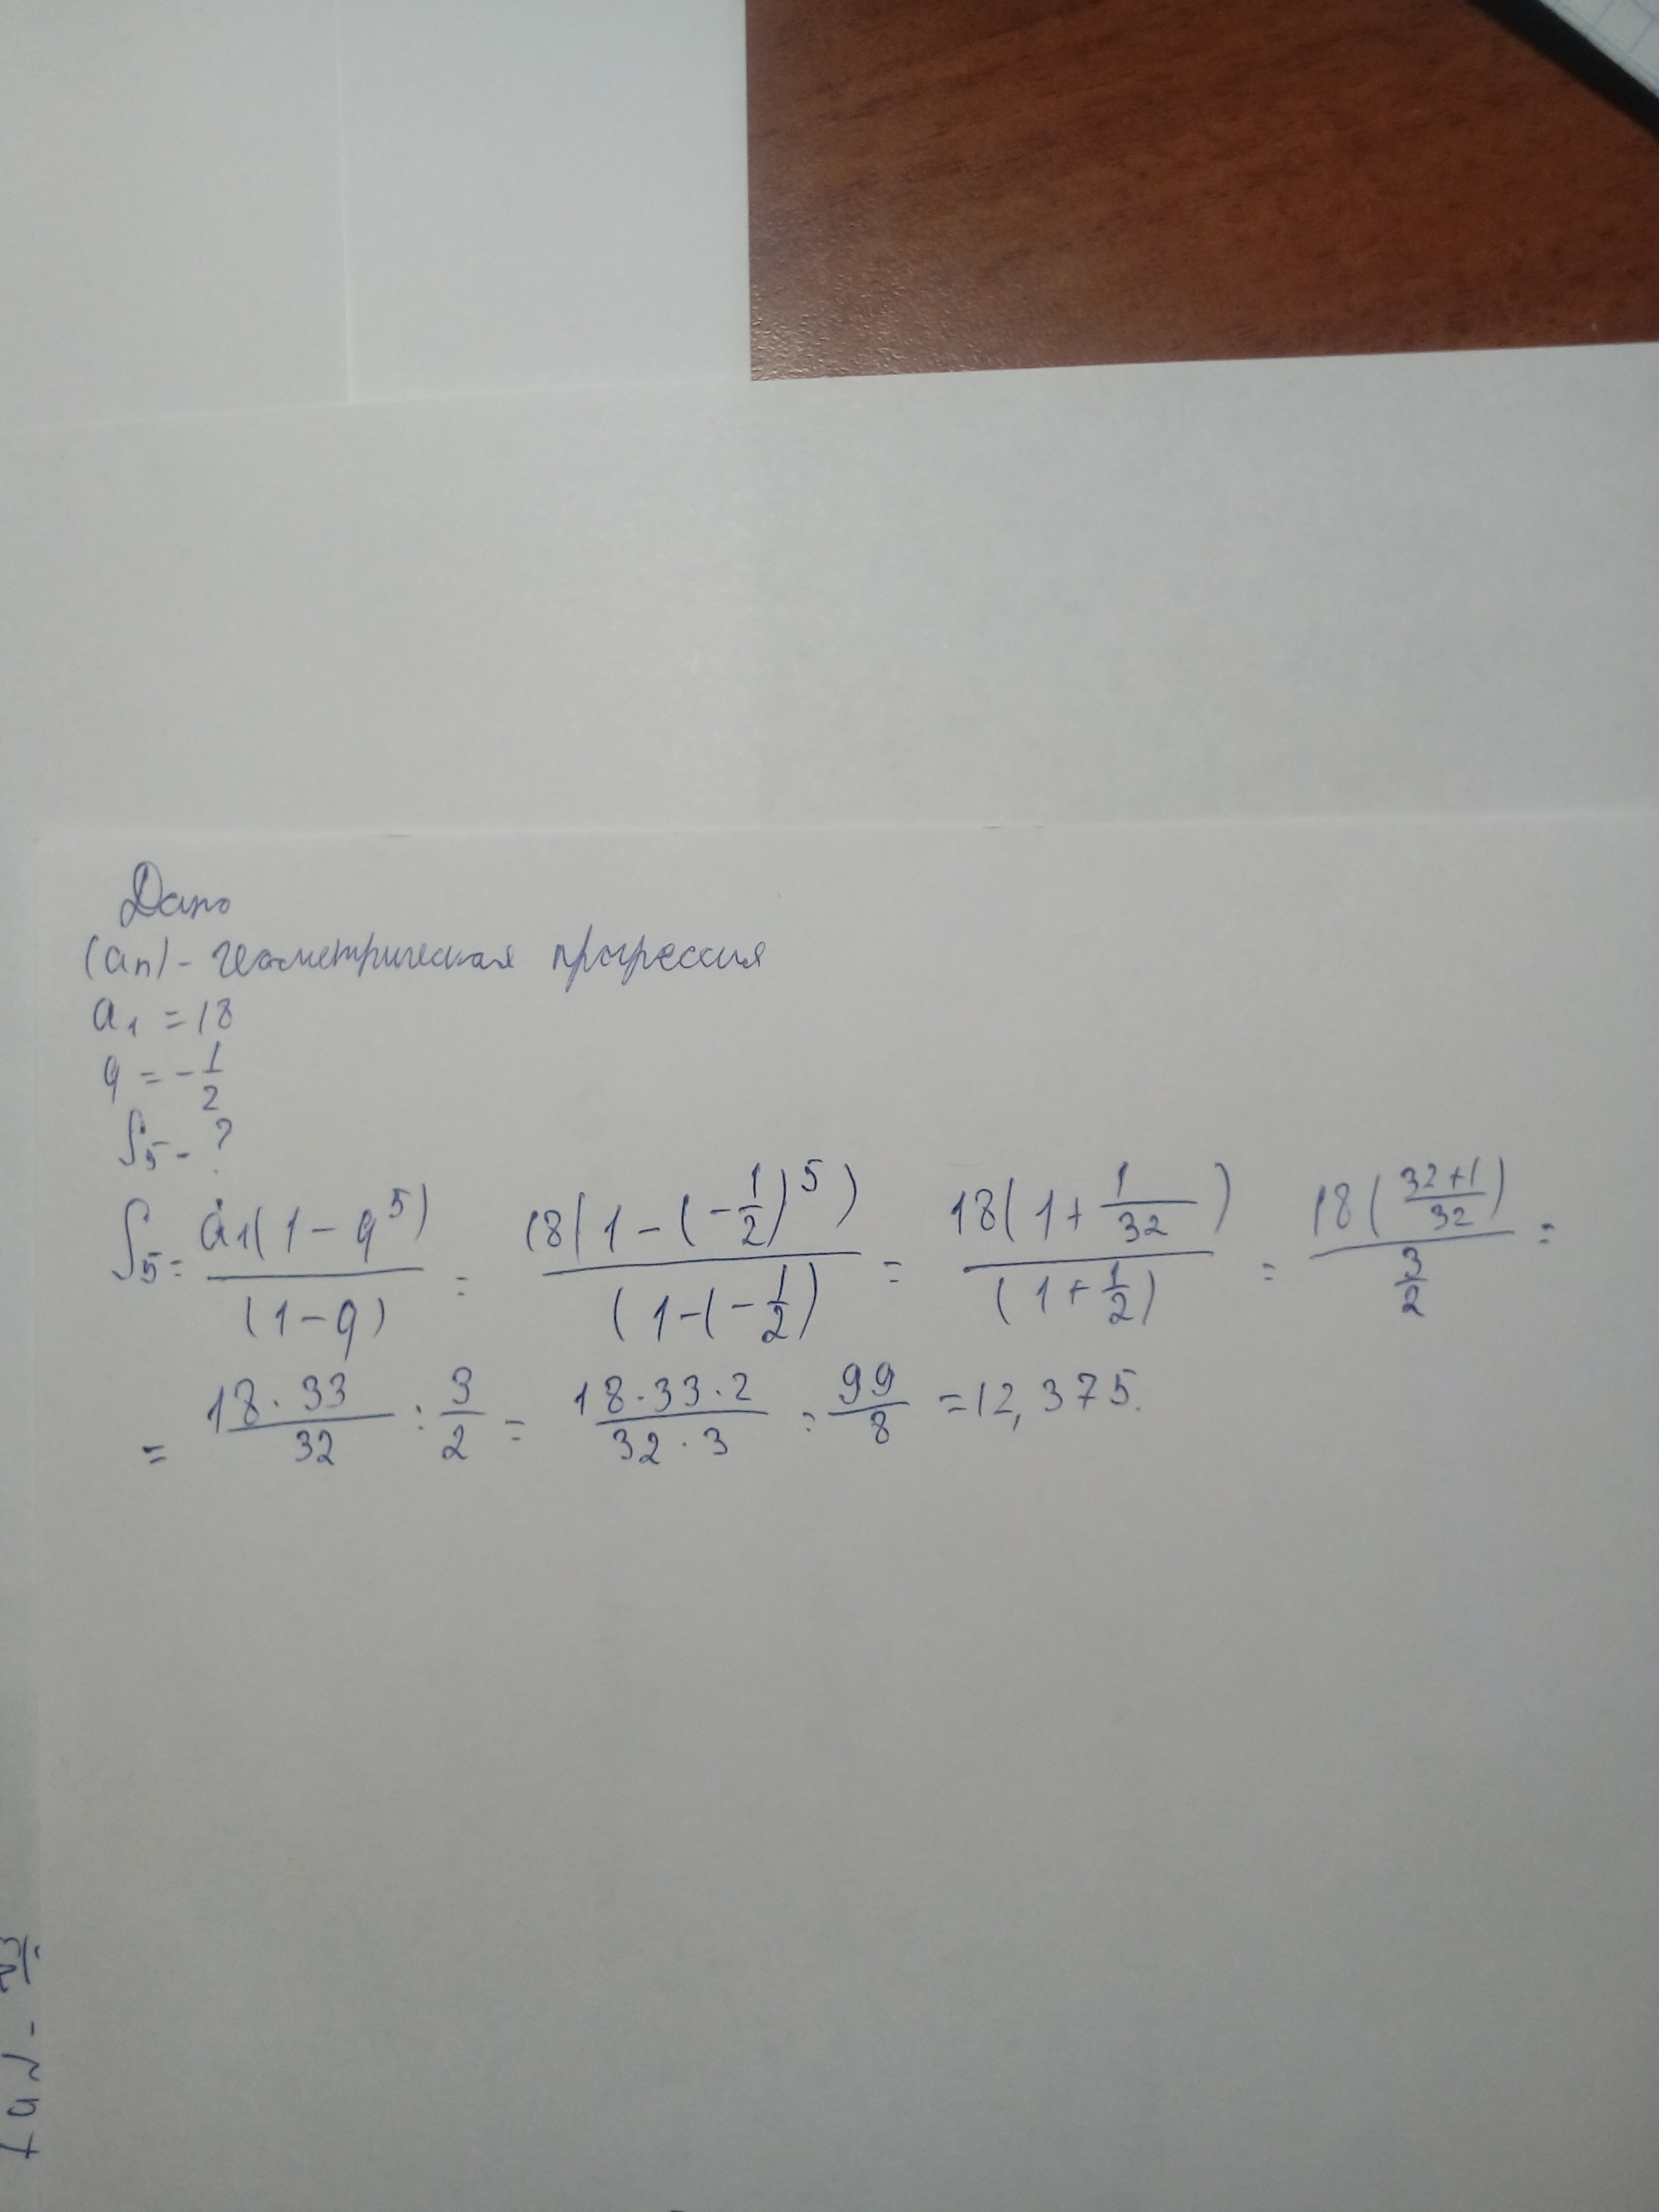 Дано
(an) - геометрическая прогрессия
a₁ = 18
q = -1/2
S₅ - ?
S₅ = a₁(1 - q⁵) / (1 - q) = 18(1 - (-1/2)⁵) / (1 - (-1/2) = 18(1 + 1/32) / (1 + 1/2) = 18(32+1/32) / 3/2 =
= 18 · 33 / 32 : 3/2 = 18 · 33 · 2 / 32 · 3 = 99/8 = 12,375.